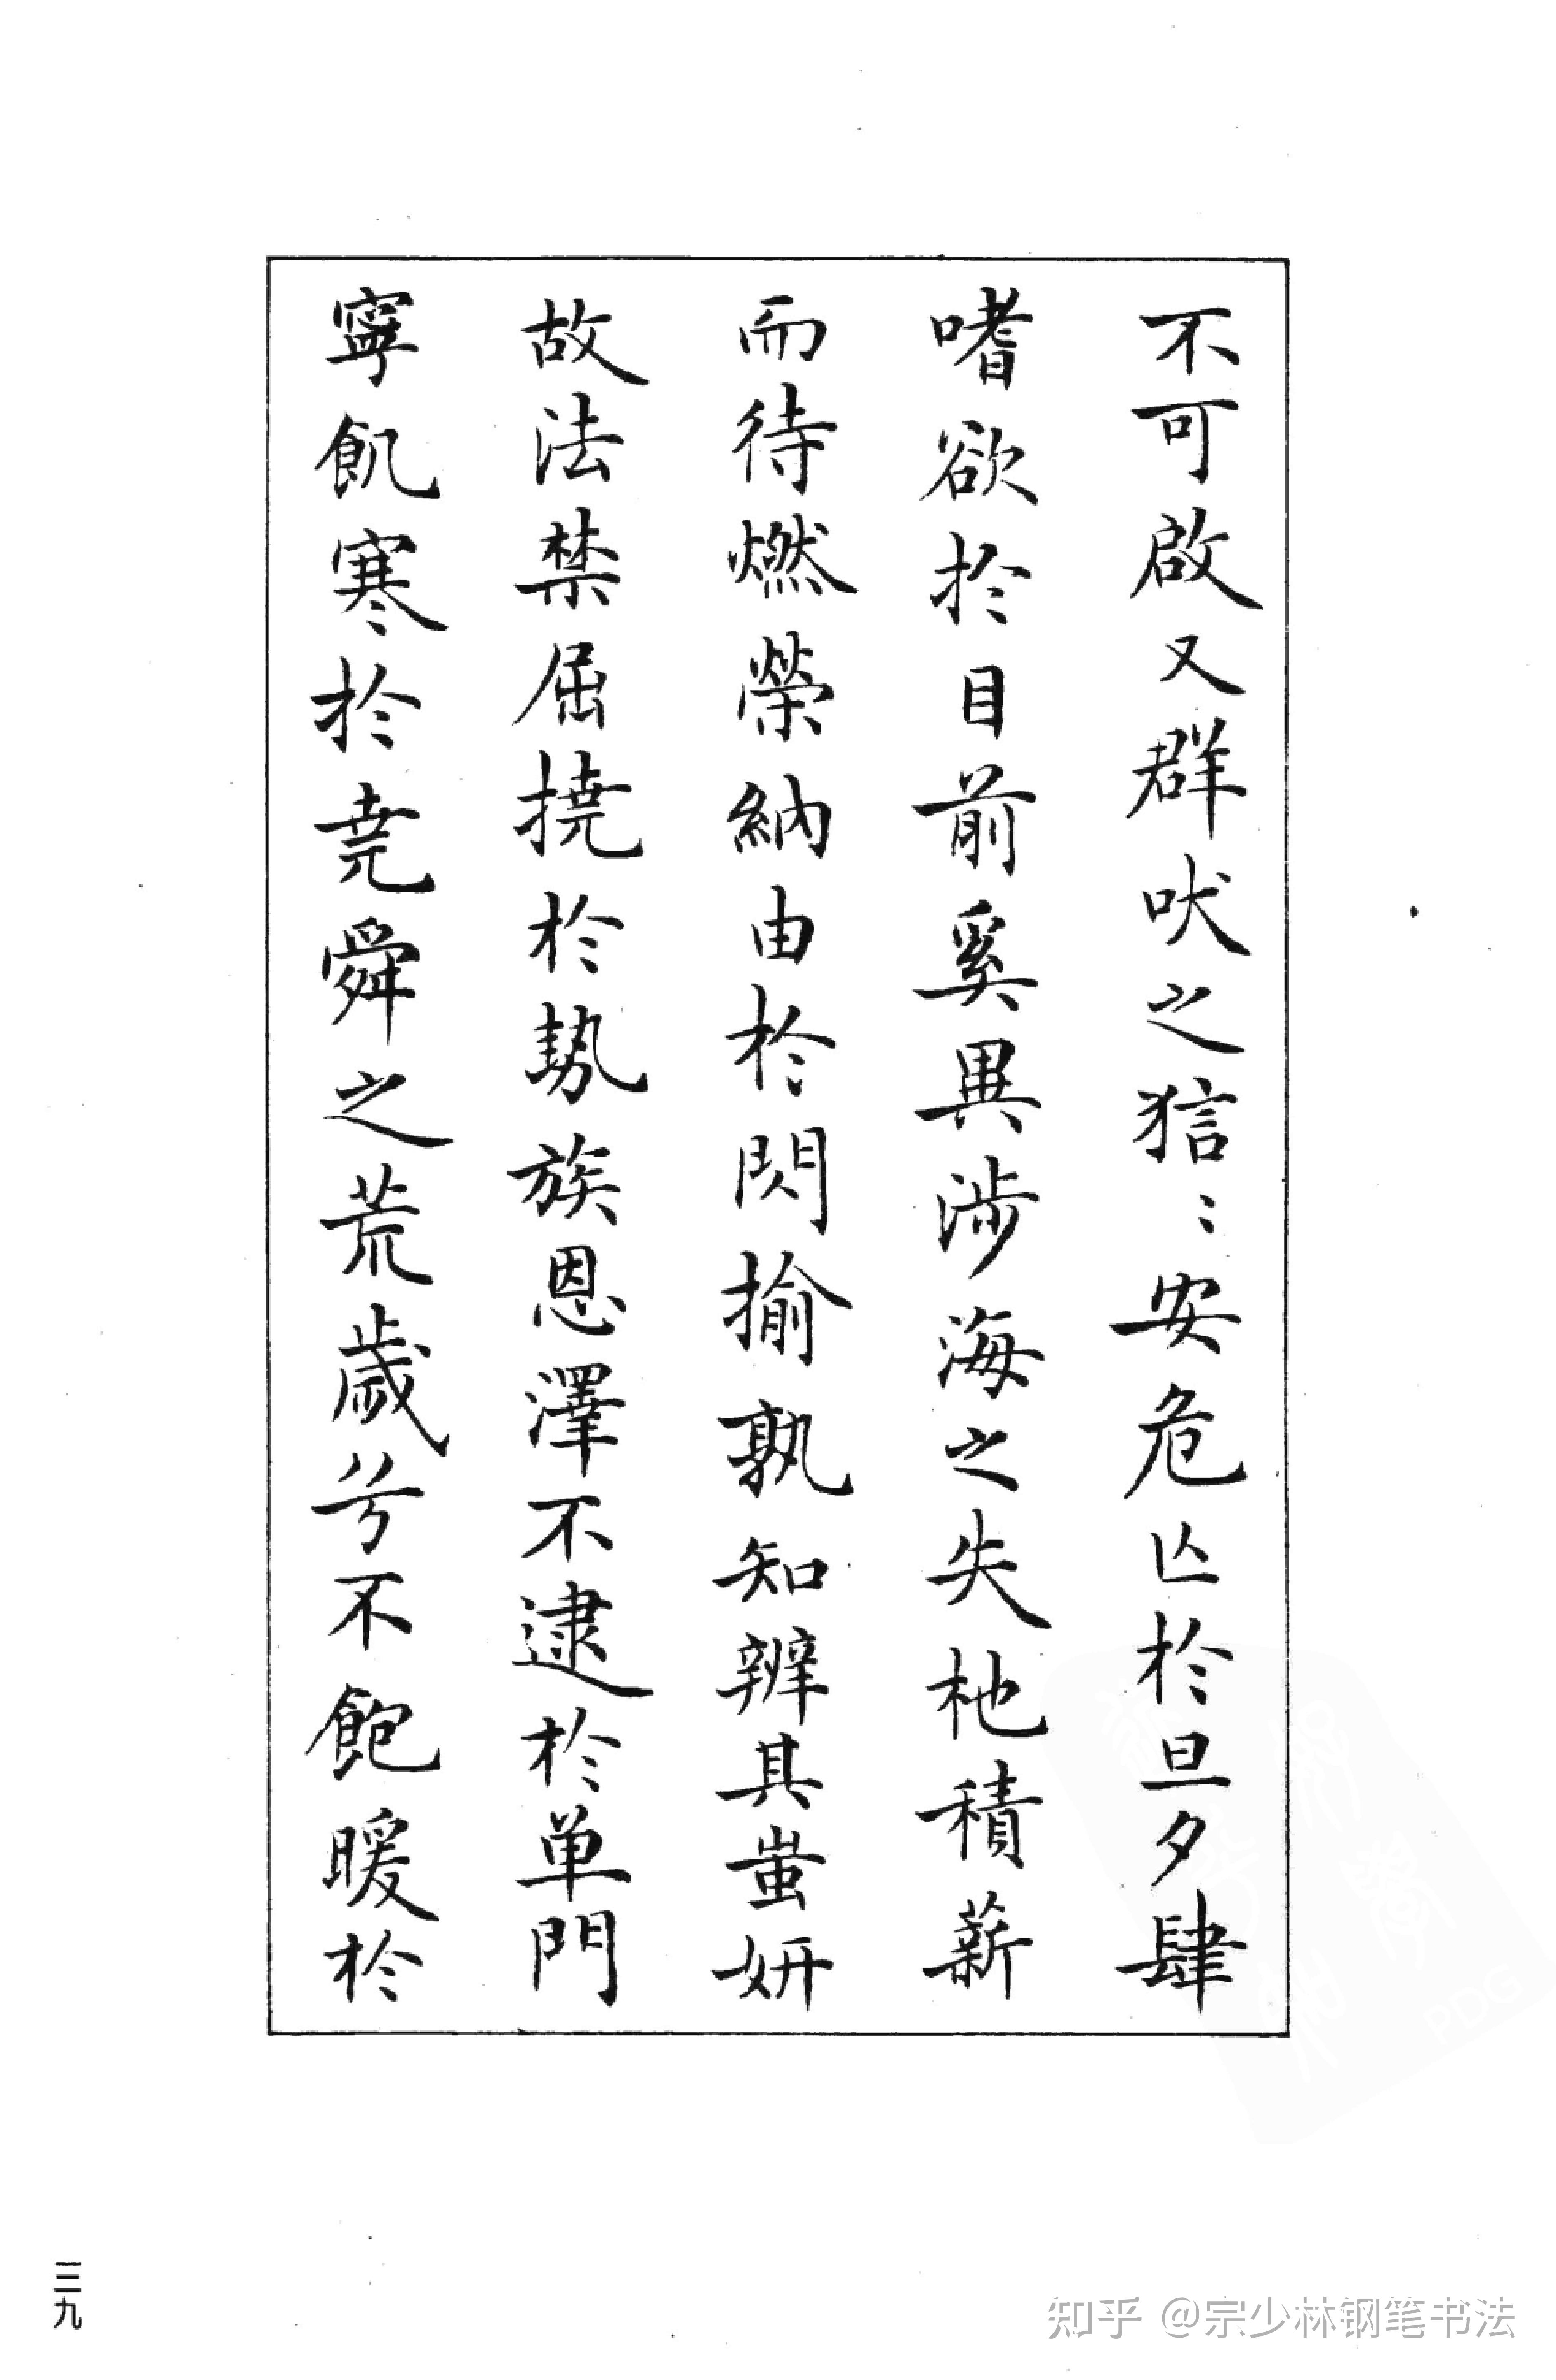 不可啟又群吠之狺〻安危亾於旦夕肆
嗜欲於目前奚異涉海之失柂積薪
而待燃榮納由於閃揄孰知辨其蚩妍
故法禁屈撓於勢族恩澤不逮於单門
寧飢寒於堯舜之荒歲兮不飽暖於
三九
知乎 @宗少林钢笔书法